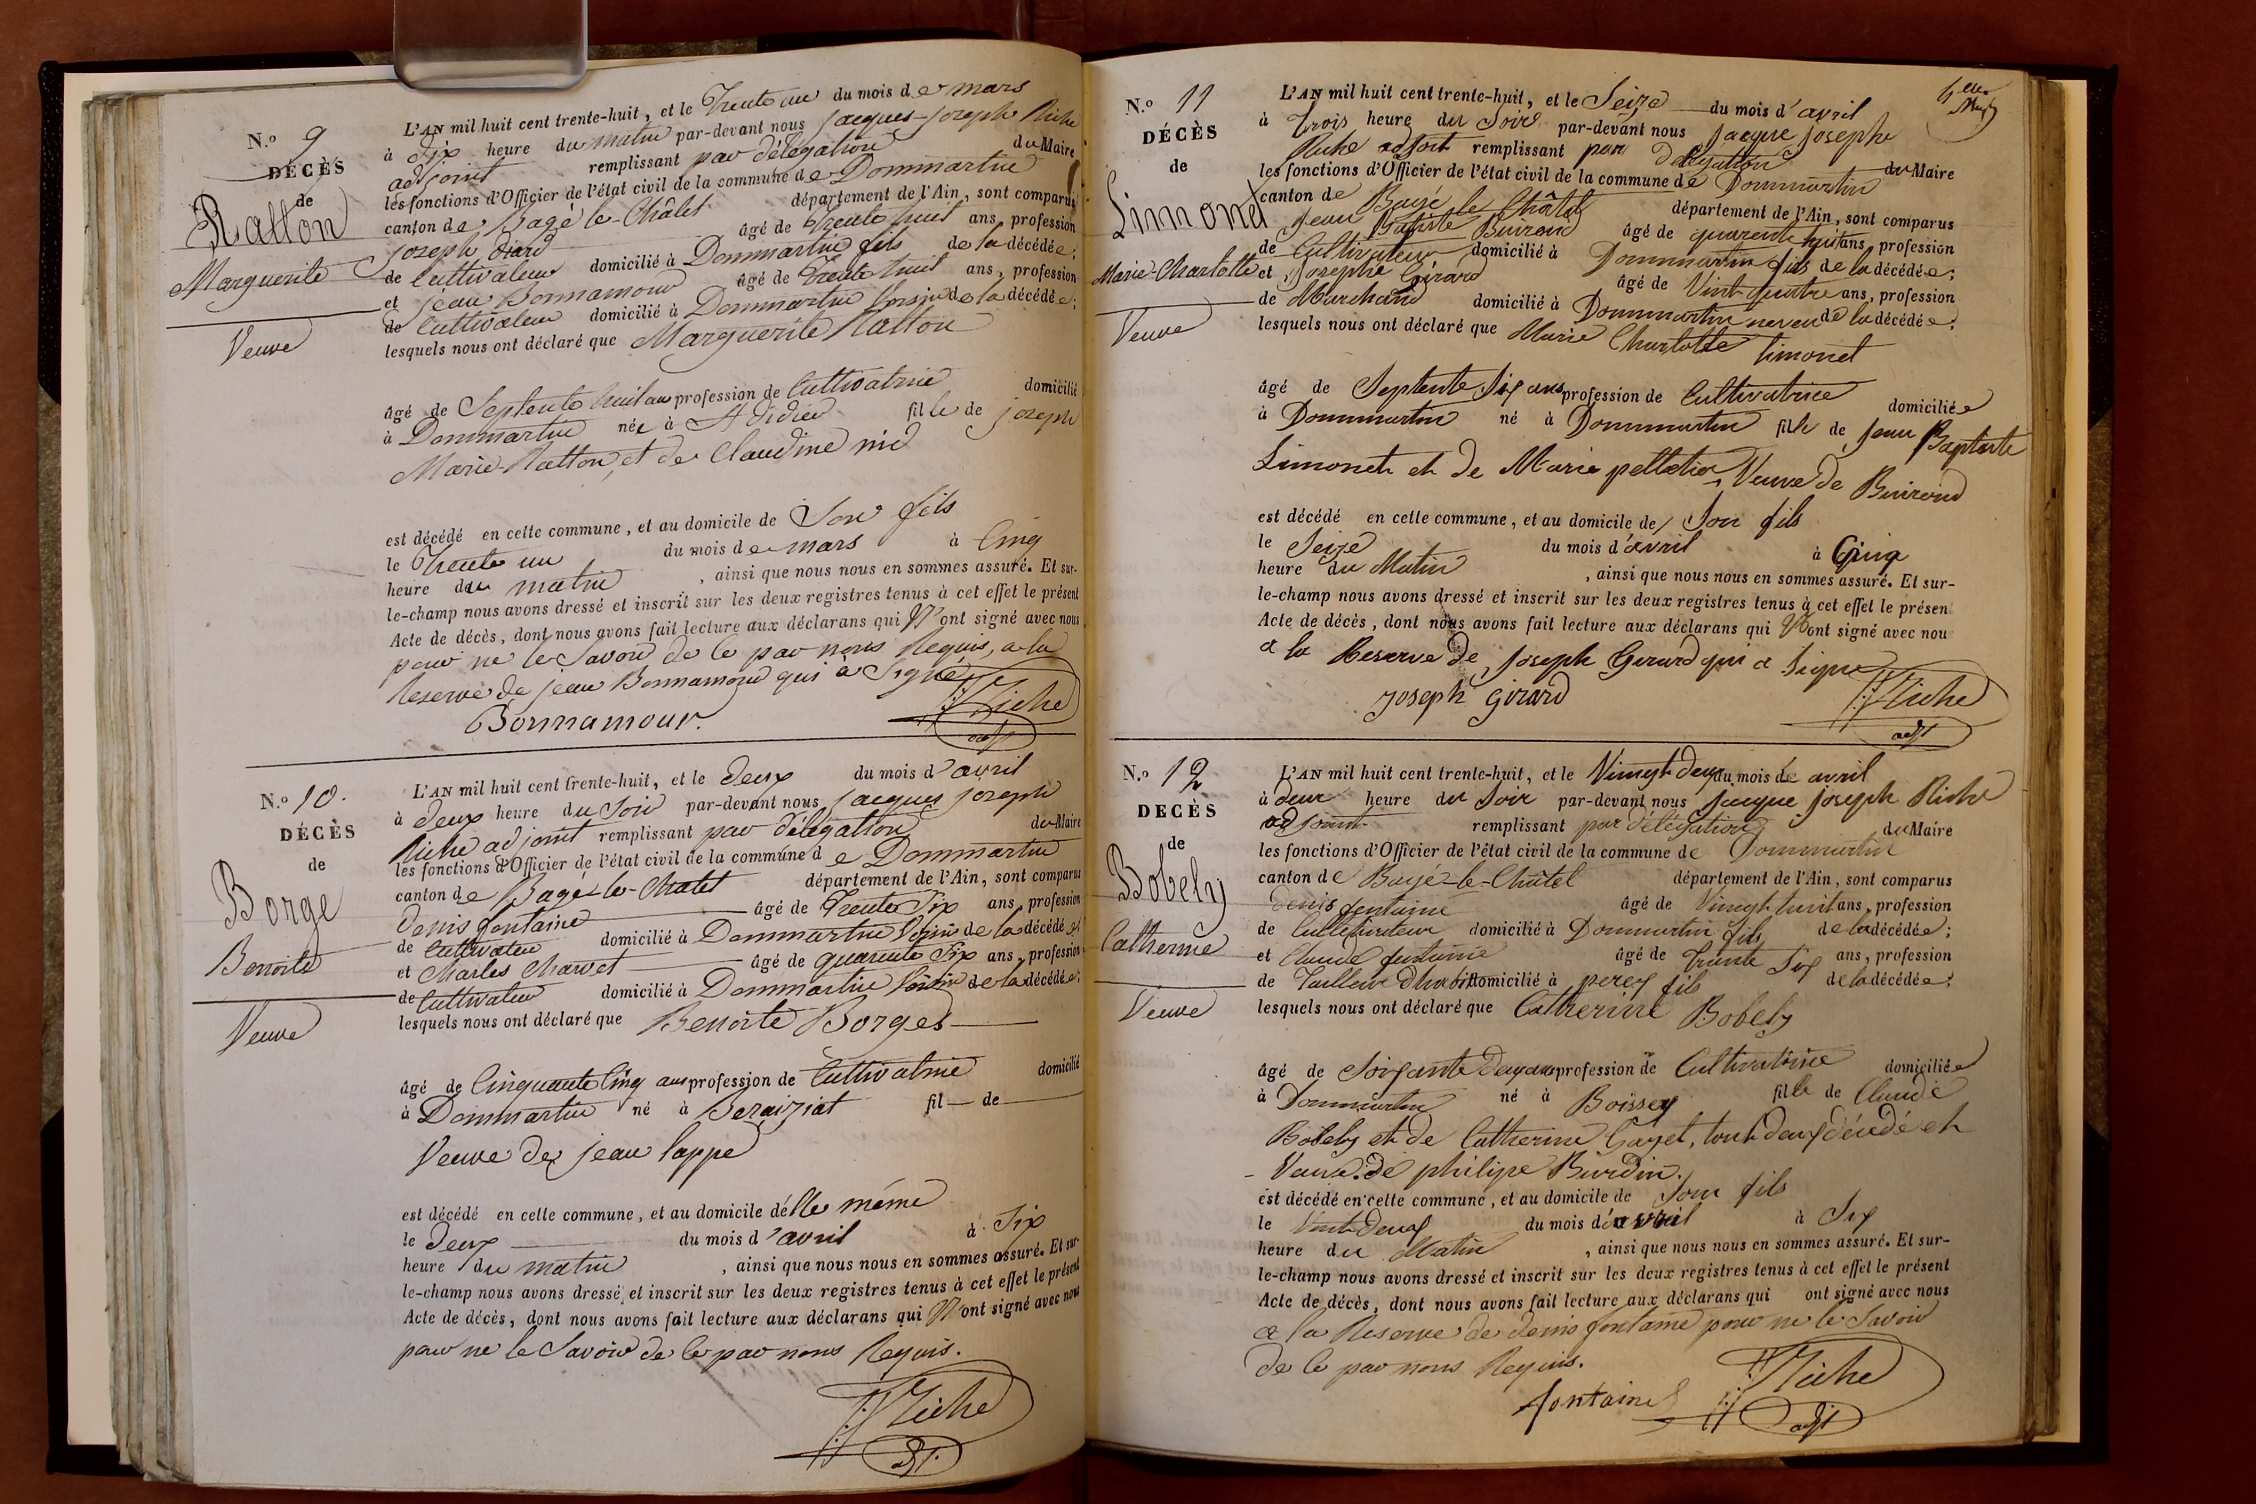 N.° 9
DÉCÈS
de
Ratton
Marguerite
Veuve
L'AN mil huit cent trente-huit, et le Trente un du mois de mars
à dix heure du matin par-devant nous jacques-joseph Riche
adjoint remplissant par délégation du Maire
les fonctions d'Officier de l'état civil de la commune de Dommartin
canton de Bagé le Châtel département de l'Ain, sont comparus
joseph diard âgé de trente huit ans, profession
de Cultivateur domicilié à Dommartin fils de la décédée;
et jean Bonnamour âgé de trente huit ans, profession
de Cultivateur domicilié à Dommartin Voisin de la décédée;
lesquels nous ont déclaré que Marguerite Ratton
âgé de Septente huit ans profession de Cultivatrice domicilié
à Dommartin née à St didier fille de joseph
Marie Ratton, et de Claudine
est décédé en cette commune, et au domicile de Son fils
le Trente un du mois de mars à Cinq
heure du matin, ainsi que nous nous en sommes assuré. Et sur-
le-champ nous avons dressé et inscrit sur les deux registres tenus à cet effet le présent
Acte de décès, dont nous avons fait lecture aux déclarans qui N'ont signé avec nous
pour ne le Savoir de Ce par nous Requis, a la
Reserve de jean Bonnamour qui à Signé
Bonnamour. Riche
adjt
N.° 10.
DÉCÈS
de
Borge
Benoite
Veuve
L'AN mil huit cent trente-huit, et le deux du mois d'avril
à deux heure du Soir par-devant nous jacques joseph
Riche adjoint remplissant par délégation du Maire
les fonctions d'Officier de l'état civil de la commune de Dommartin
canton de Bagé-le-Chatel département de l'Ain, sont comparus
denis fontaine âgé de trente Six ans, profession
de Cultivateur domicilié à Dommartin Voisin de la décédée
et Charles Charvet âgé de quarente Six ans, profession
de Cultivateur domicilié à Dommartin Voisin de la décédée;
lesquels nous ont déclaré que Benoite Borges
âgé de Cinquante Cinq ans profession de Cultivatrice domicilié
à Dommartin né à Beraiziat fil de
Veuve de jean Lappe
est décédé en cette commune, et au domicile d'elle même
le deux du mois d'avril à Six
heure du matin, ainsi que nous nous en sommes assuré. Et sur-
le-champ nous avons dressé et inscrit sur les deux registres tenus à cet effet le présent
Acte de décès, dont nous avons fait lecture aux déclarans qui N'ont signé avec nous
pour ne le Savoir de Ce par nous Requis.
Riche
adjt
N.° 11
DÉCÈS
de
Limonet
Marie Charlotte
Veuve
L'AN mil huit cent trente-huit, et le Seize du mois d'avril
à trois heure du Soir par-devant nous jacque joseph
Riche adjoit remplissant par Delegation du Maire
les fonctions d'Officier de l'état civil de la commune de Dommartin
canton de Bagé le Châtel département de l'Ain, sont comparus
Jean Batiste Buirond âgé de quarente huit ans, profession
de Cultivateur domicilié à Dommartin fils de la décédée;
et Josephe Girard âgé de Vint quatre ans, profession
de Marchand domicilié à Dommartin neveu de la décédée;
lesquels nous ont déclaré que Marie Charlotte Limonet
âgé de Septente Six ans profession de Cultivatrice domiciliée
à Dommartin né à Dommartin fille de jean Baptiste
Limonet et de Marie pelletier, Veuve de Buirond
est décédé en cette commune, et au domicile de Son fils
le Seize du mois d'avril à Cinq
heure du Matin, ainsi que nous nous en sommes assuré. Et sur-
le-champ nous avons dressé et inscrit sur les deux registres tenus à cet effet le présen
Acte de décès, dont nous avons fait lecture aux déclarans qui N'ont signé avec nou
a la Reserve de joseph Girard qui a Signé
joseph girard Riche
adjt
N.° 12
DECÈS
de
Bobely
Catherine
Veuve
L'AN mil huit cent trente-huit, et le Vingt deux du mois de avril
à deux heure du Soir par-devant nous jacque joseph Riche
adjoint remplissant par délégation du Maire
les fonctions d'Officier de l'état civil de la commune de Dommartin
canton de Bagé-le-Châtel département de l'Ain, sont comparus
denis fontaine âgé de Vingt huit ans, profession
de Cultivateur domicilié à Dommartin fils de la décédée;
et Claude fontaine âgé de Trente Six ans, profession
de Tailleur dhabit domicilié à perex fils de la décédée;
lesquels nous ont déclaré que Catherine Bobely
âgé de Soixante deux ans profession de Cultivatrice domiciliée
à Dommartin né à Boissey fille de Claude
Bobely et de Catherine Gayet, tout deux décédé et
Veuve de philipe Burdin.
est décédé en cette commune, et au domicile de Son fils
le Vint deux du mois d'avril à Six
heure du Matin, ainsi que nous nous en sommes assuré. Et sur-
le-champ nous avons dressé et inscrit sur les deux registres tenus à cet effet le présent
Acte de décès, dont nous avons fait lecture aux déclarans qui ont signé avec nous
a la Reserve de denis fontaine pour ne le Savoir
de Ce par nous Requis.
fontaine Riche
adjt